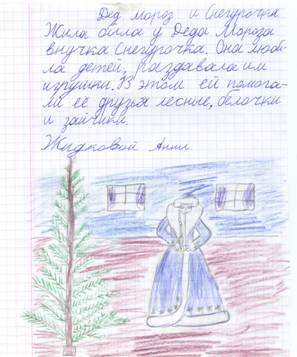 Дед мороз и Снегурочка.
Жила была у Деда Мороза
внучка Снегурочка. Она люби-
ла детей, раздавала им
игрушки. В этом ей помога-
ли ее друзья лесные, белочки
и зайчики.
Жидковой Анны.